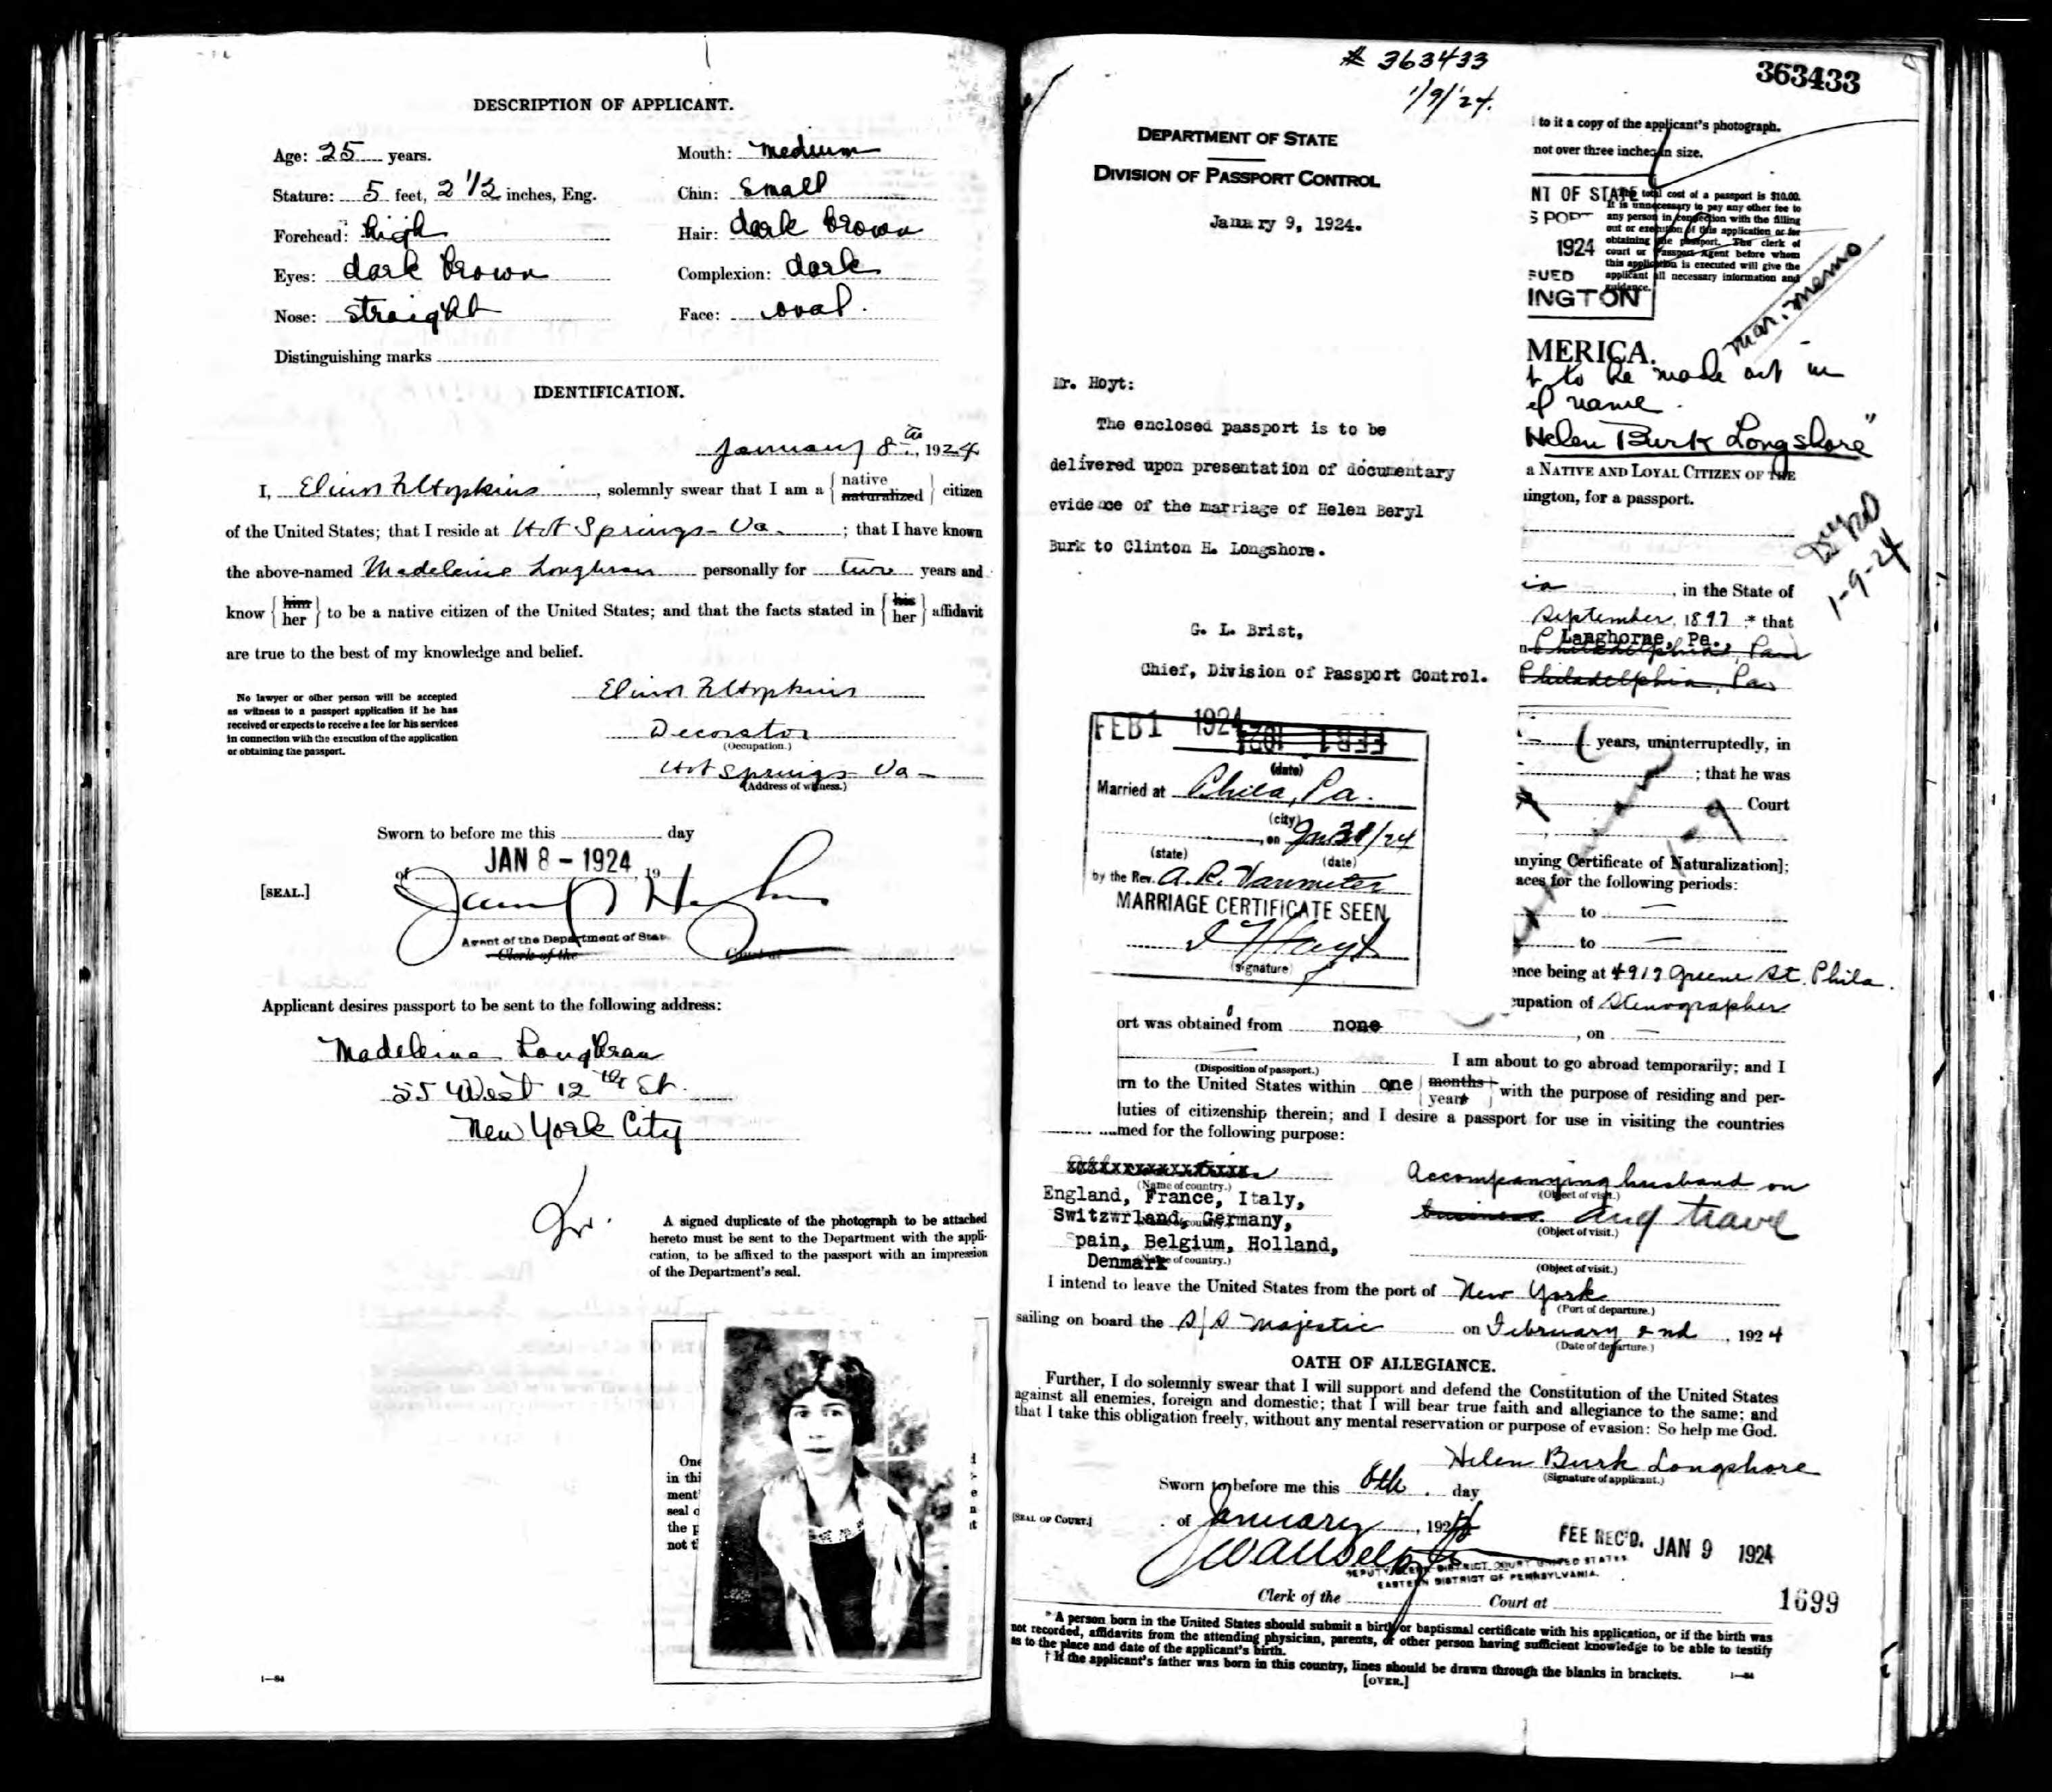 DESCRIPTION OF APPLICANT.
Age: 25 years.
Mouth: medium
Stature: 5 feet, 2 1/2 inches, Eng.
Chin: Small
Forehead: high
Hair: dark brown
Eyes: dark brown
Complexion: dark
Nose: straight
Face: oval.
Distinguishing marks
IDENTIFICATION.
January 8th, 1924
I, Elinor Hopkins, solemnly swear that I am a { native naturalized } citizen
of the United States; that I reside at Hot Springs - Va.; that I have known
the above-named Madeleine Loughran personally for two years and
know { him her } to be a native citizen of the United States; and that the facts stated in { his her } affidavit
are true to the best of my knowledge and belief.
No lawyer or other person will be accepted
as witness to a passport application if he has
received or expects to receive a fee for his services
in connection with the execution of the application
or obtaining the passport.
Elinor Hopkins
Decorator
(Occupation.)
Hot Springs Va -
(Address of witness.)
Sworn to before me this day
of JAN 8 - 1924, 19
[SEAL.]
Agent of the Department of State
Clerk of the Court at
Applicant desires passport to be sent to the following address:
Madeleine Loughran
55 West 12th St.
New York City
A signed duplicate of the photograph to be attached
hereto must be sent to the Department with the appli-
cation, to be affixed to the passport with an impression
of the Department's seal.
One
in thi
ment'
seal o
the p
not t
1—84
# 363433
1/9/'24.
363433
DEPARTMENT OF STATE
DIVISION OF PASSPORT CONTROL
January 9, 1924.
Mr. Hoyt:
The enclosed passport is to be
delivered upon presentation of documentary
evidence of the marriage of Helen Beryl
Burk to Clinton H. Longshore.
G. L. Brist,
Chief, Division of Passport Control.
to it a copy of the applicant's photograph.
not over three inches in size.
NT OF STATE
SPORT
1924
SUED
INGTON
total cost of a passport is $10.00.
It is unnecessary to pay any other fee to
any person in connection with the filling
out or execution of this application or for
obtaining the passport. The clerk of
court or Passport Agent before whom
this application is executed will give the
applicant all necessary information and
guidance.
mar. memo
MERICA.
t to be made out in
of name.
Helen Burk Longshore"
a NATIVE AND LOYAL CITIZEN OF THE
ington, for a passport.
1-9-24
ia, in the State of
September, 1897;* that
Langhorne, Pa.,
Philadelphia, Penn
Philadelphia, Pa
years, uninterruptedly, in
; that he was
Court
anying Certificate of Naturalization];
aces for the following periods:
to
to
ence being at 4917 Greene St. Phila.
cupation of Stenographer
FEB 1 1924
(date)
Married at Phila, Pa.
(city)
, on Jan 31/24
(state) (date)
by the Rev. A. R. Vanmeter
MARRIAGE CERTIFICATE SEEN
(signature)
ort was obtained from none, on
(Disposition of passport.)
I am about to go abroad temporarily; and I
rn to the United States within one { months years } with the purpose of residing and per-
duties of citizenship therein; and I desire a passport for use in visiting the countries
med for the following purpose:
(Name of country.)
England, France, Italy,
Switzwrland, Germany,
Spain, Belgium, Holland,
Denmark
Accompanying husband on
(Object of visit.)
business and travel
(Object of visit.)
(Object of visit.)
I intend to leave the United States from the port of New York
(Port of departure.)
sailing on board the S/S Majestic on February 2nd, 1924
(Date of departure.)
OATH OF ALLEGIANCE.
Further, I do solemnly swear that I will support and defend the Constitution of the United States
against all enemies, foreign and domestic; that I will bear true faith and allegiance to the same; and
that I take this obligation freely, without any mental reservation or purpose of evasion: So help me God.
Helen Burk Longshore
(Signature of applicant.)
Sworn to before me this 8th day
[SEAL OF COURT.]
of January, 1924
FEE REC'D. JAN 9 1924
DEPUTY CLERK DISTRICT COURT UNITED STATES
EASTERN DISTRICT OF PENNSYLVANIA.
Clerk of the Court at
1699
* A person born in the United States should submit a birth or baptismal certificate with his application, or if the birth was
not recorded, affidavits from the attending physician, parents, or other person having sufficient knowledge to be able to testify
as to the place and date of the applicant's birth.
† If the applicant's father was born in this country, lines should be drawn through the blanks in brackets.
1—84
[OVER.]